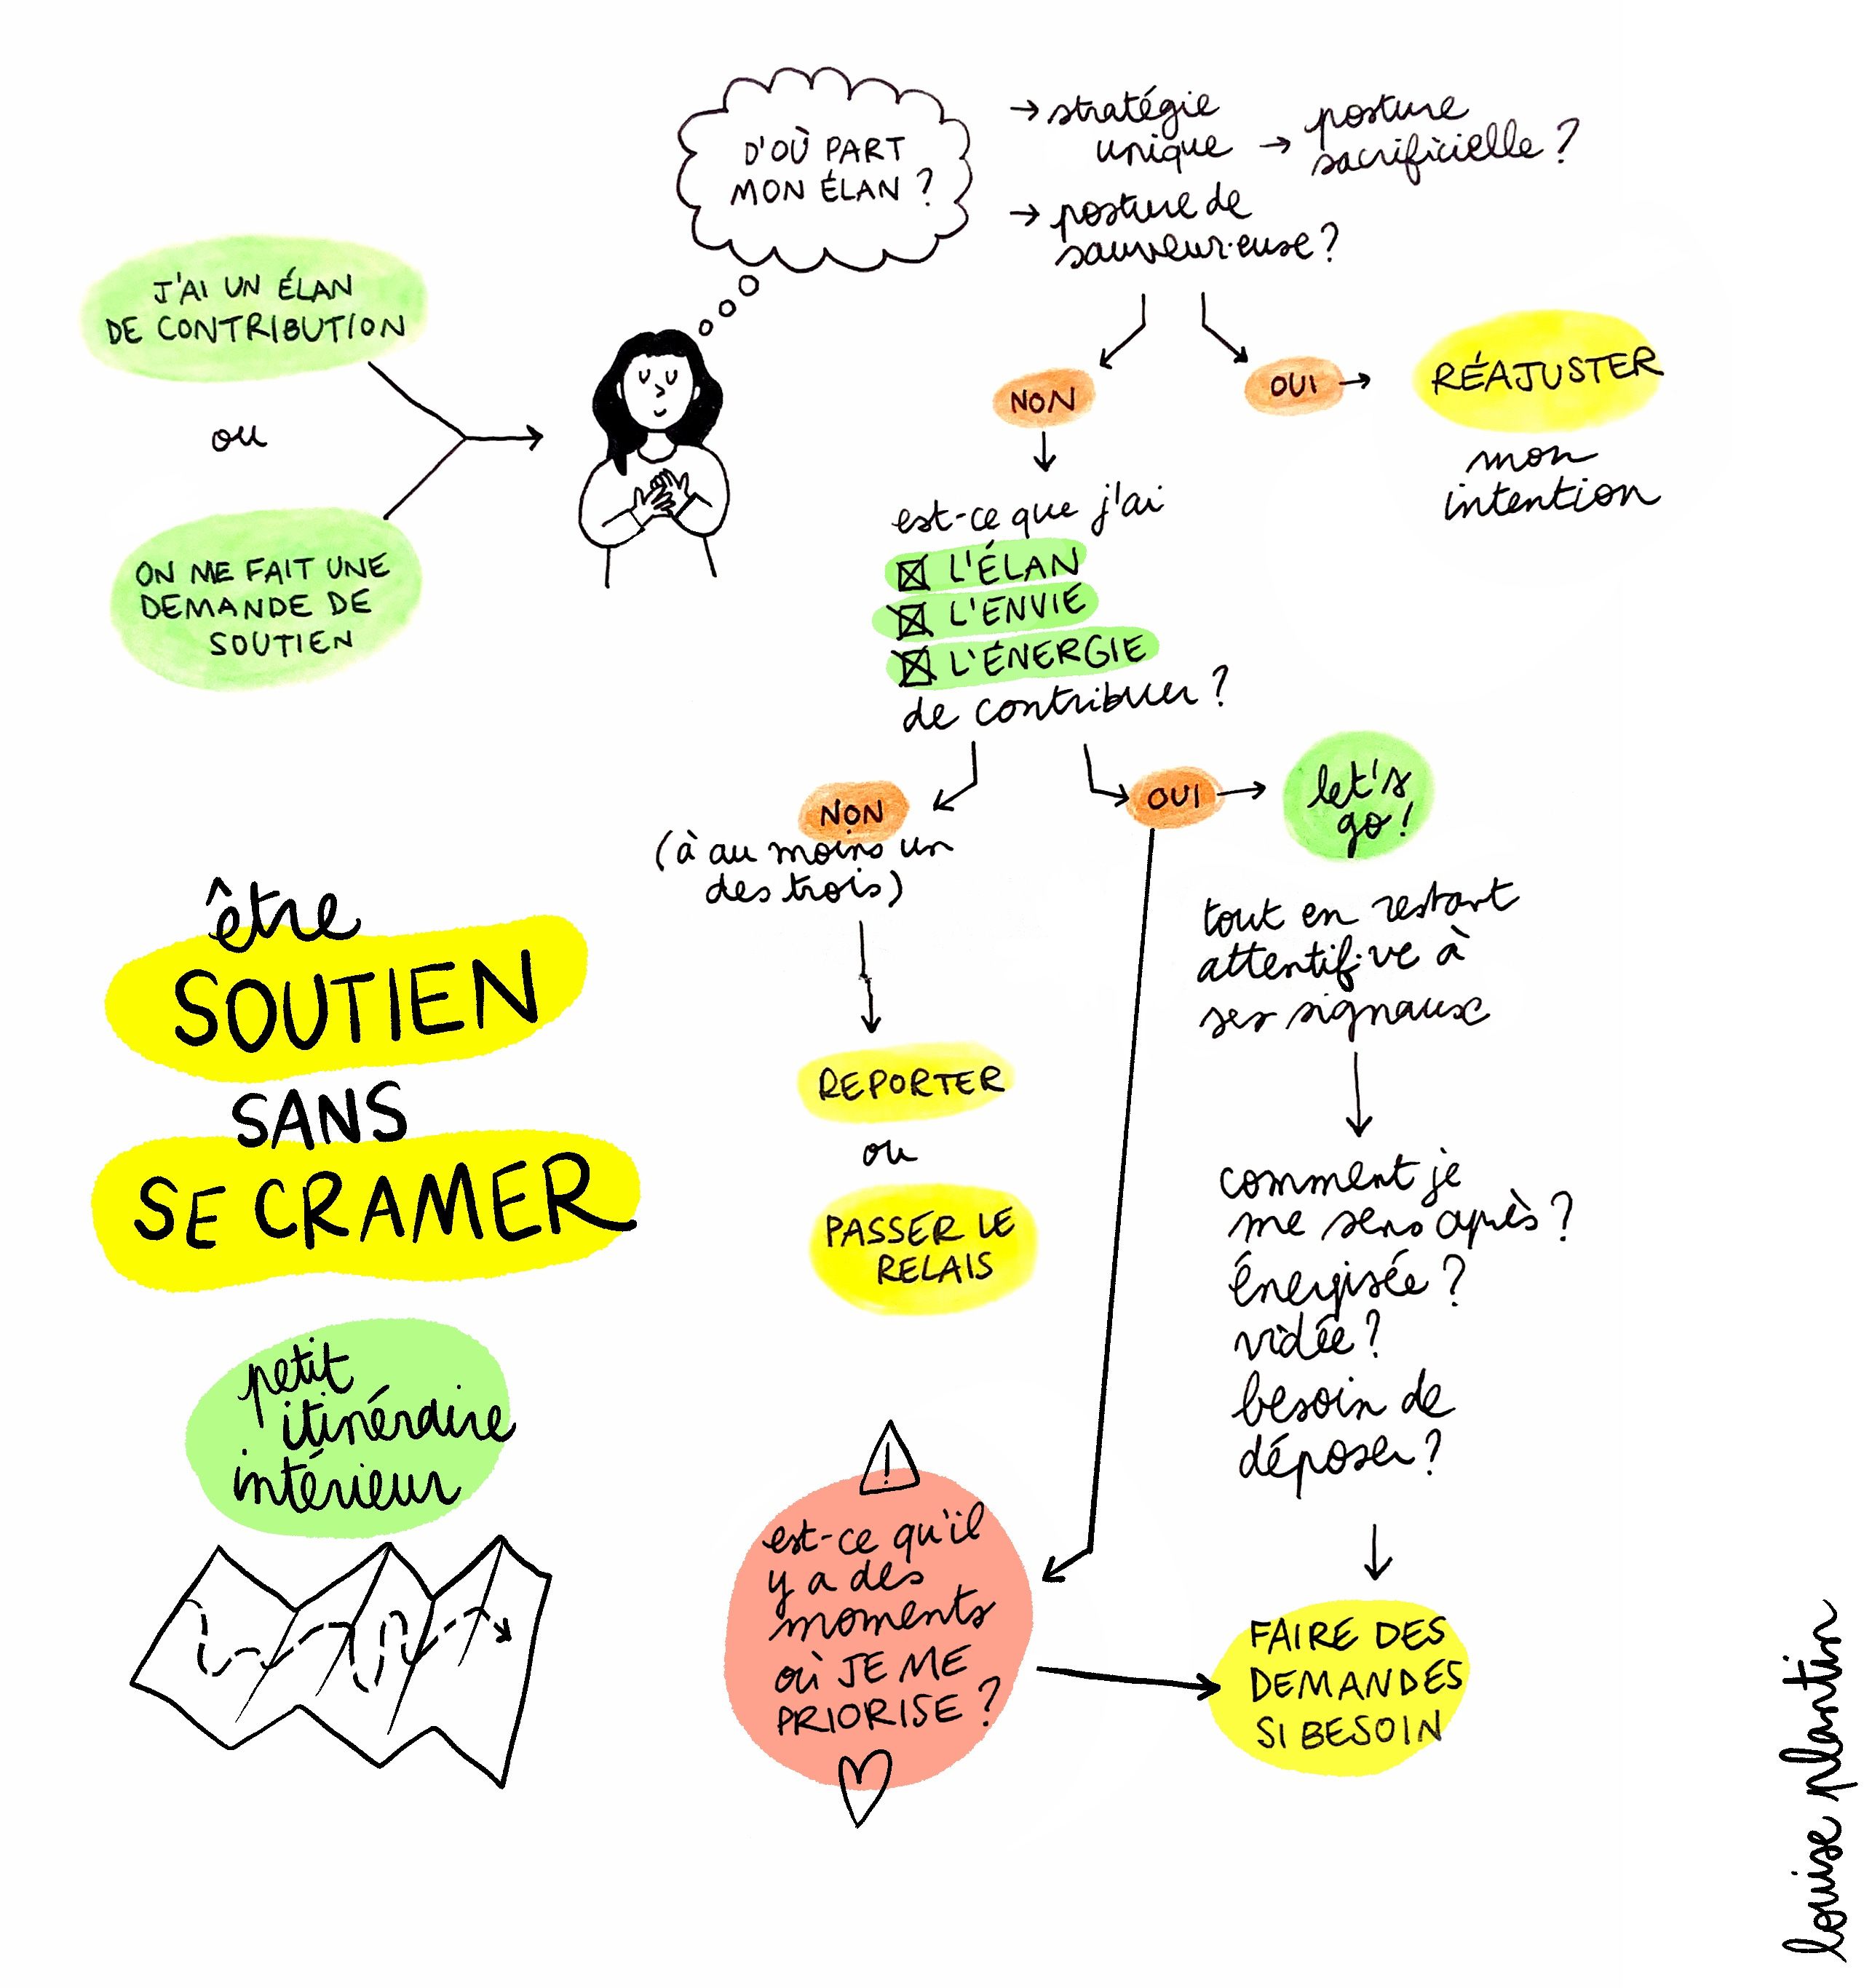 D'OÙ PART
MON ÉLAN ?
→ stratégie
unique → posture
sacrificielle ?
→ posture de
sauveur·euse ?
J'AI UN ÉLAN
DE CONTRIBUTION
ou
ON ME FAIT UNE
DEMANDE DE
SOUTIEN
NON
OUI
RÉAJUSTER
mon
intention
est-ce que j'ai
L'ÉLAN
L'ENVIE
L'ÉNERGIE
de contribuer ?
NON
(à au moins un
des trois)
OUI
let's
go !
REPORTER
ou
PASSER LE
RELAIS
tout en restant
attentif·ve à
ses signaux
comment je
me sens après ?
énergisée ?
vidée ?
besoin de
déposer ?
est-ce qu'il
y a des
moments
où JE ME
PRIORISE ?
FAIRE DES
DEMANDES
SI BESOIN
être
SOUTIEN
SANS
SE CRAMER
petit
itinéraire
intérieur
louise plantin